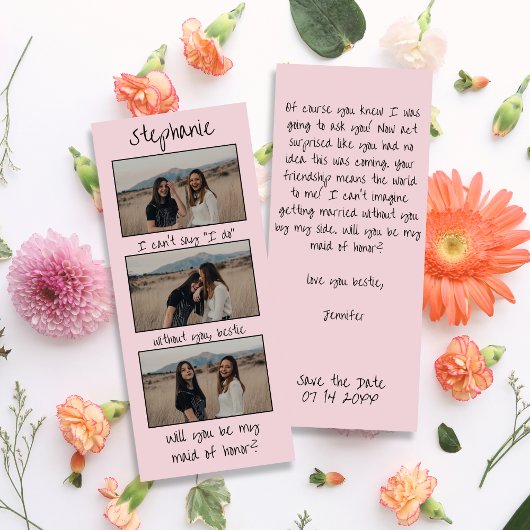 stephanie
I can't say "I do"
without you, bestie
will you be my
maid of honor?
Of course you knew I was
going to ask you! Now act
surprised like you had no
idea this was coming. your
friendship means the world
to me! I can't imagine
getting married without you
by my side. will you be my
maid of honor?
love you bestie,
Jennifer
Save the Date
07 14 20YY